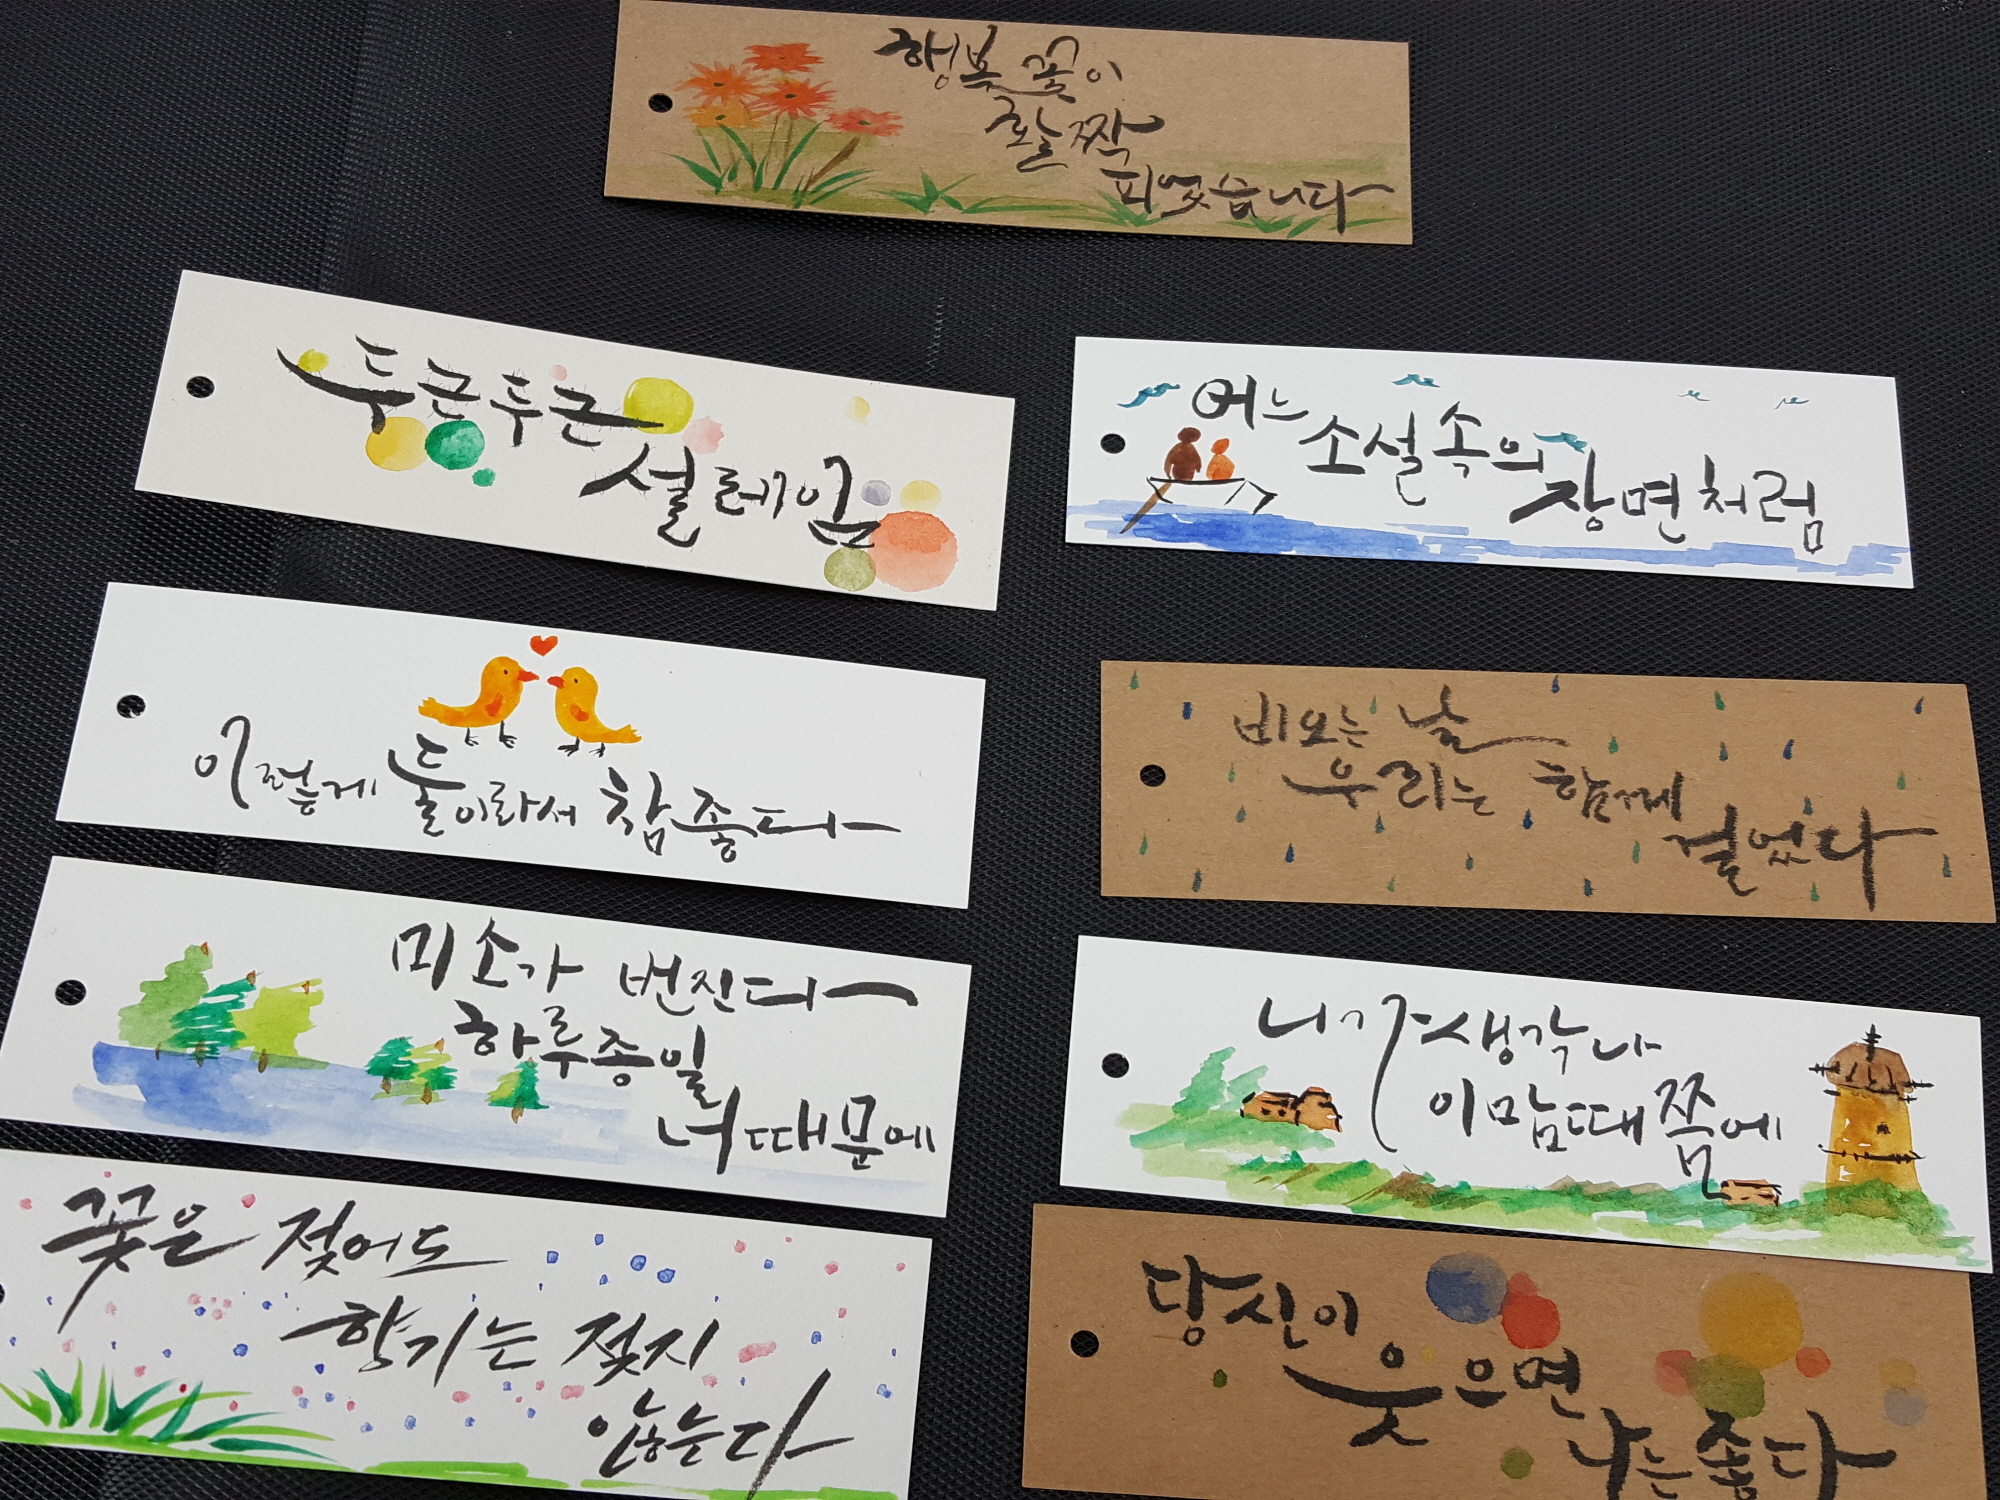 행복 꽃이
활짝
피였습니다
두근두근
설레임
어느
소설속의
장면처럼
이렇게 둘이라서 참좋다
비오는 날
우리는 함께
걸었다
미소가 번진다
하루종일
너 때문에
니가 생각나
이맘때쯤에
꽃은 젖어도
향기는 젖지
않는다
당신이
웃으면
나는 좋다